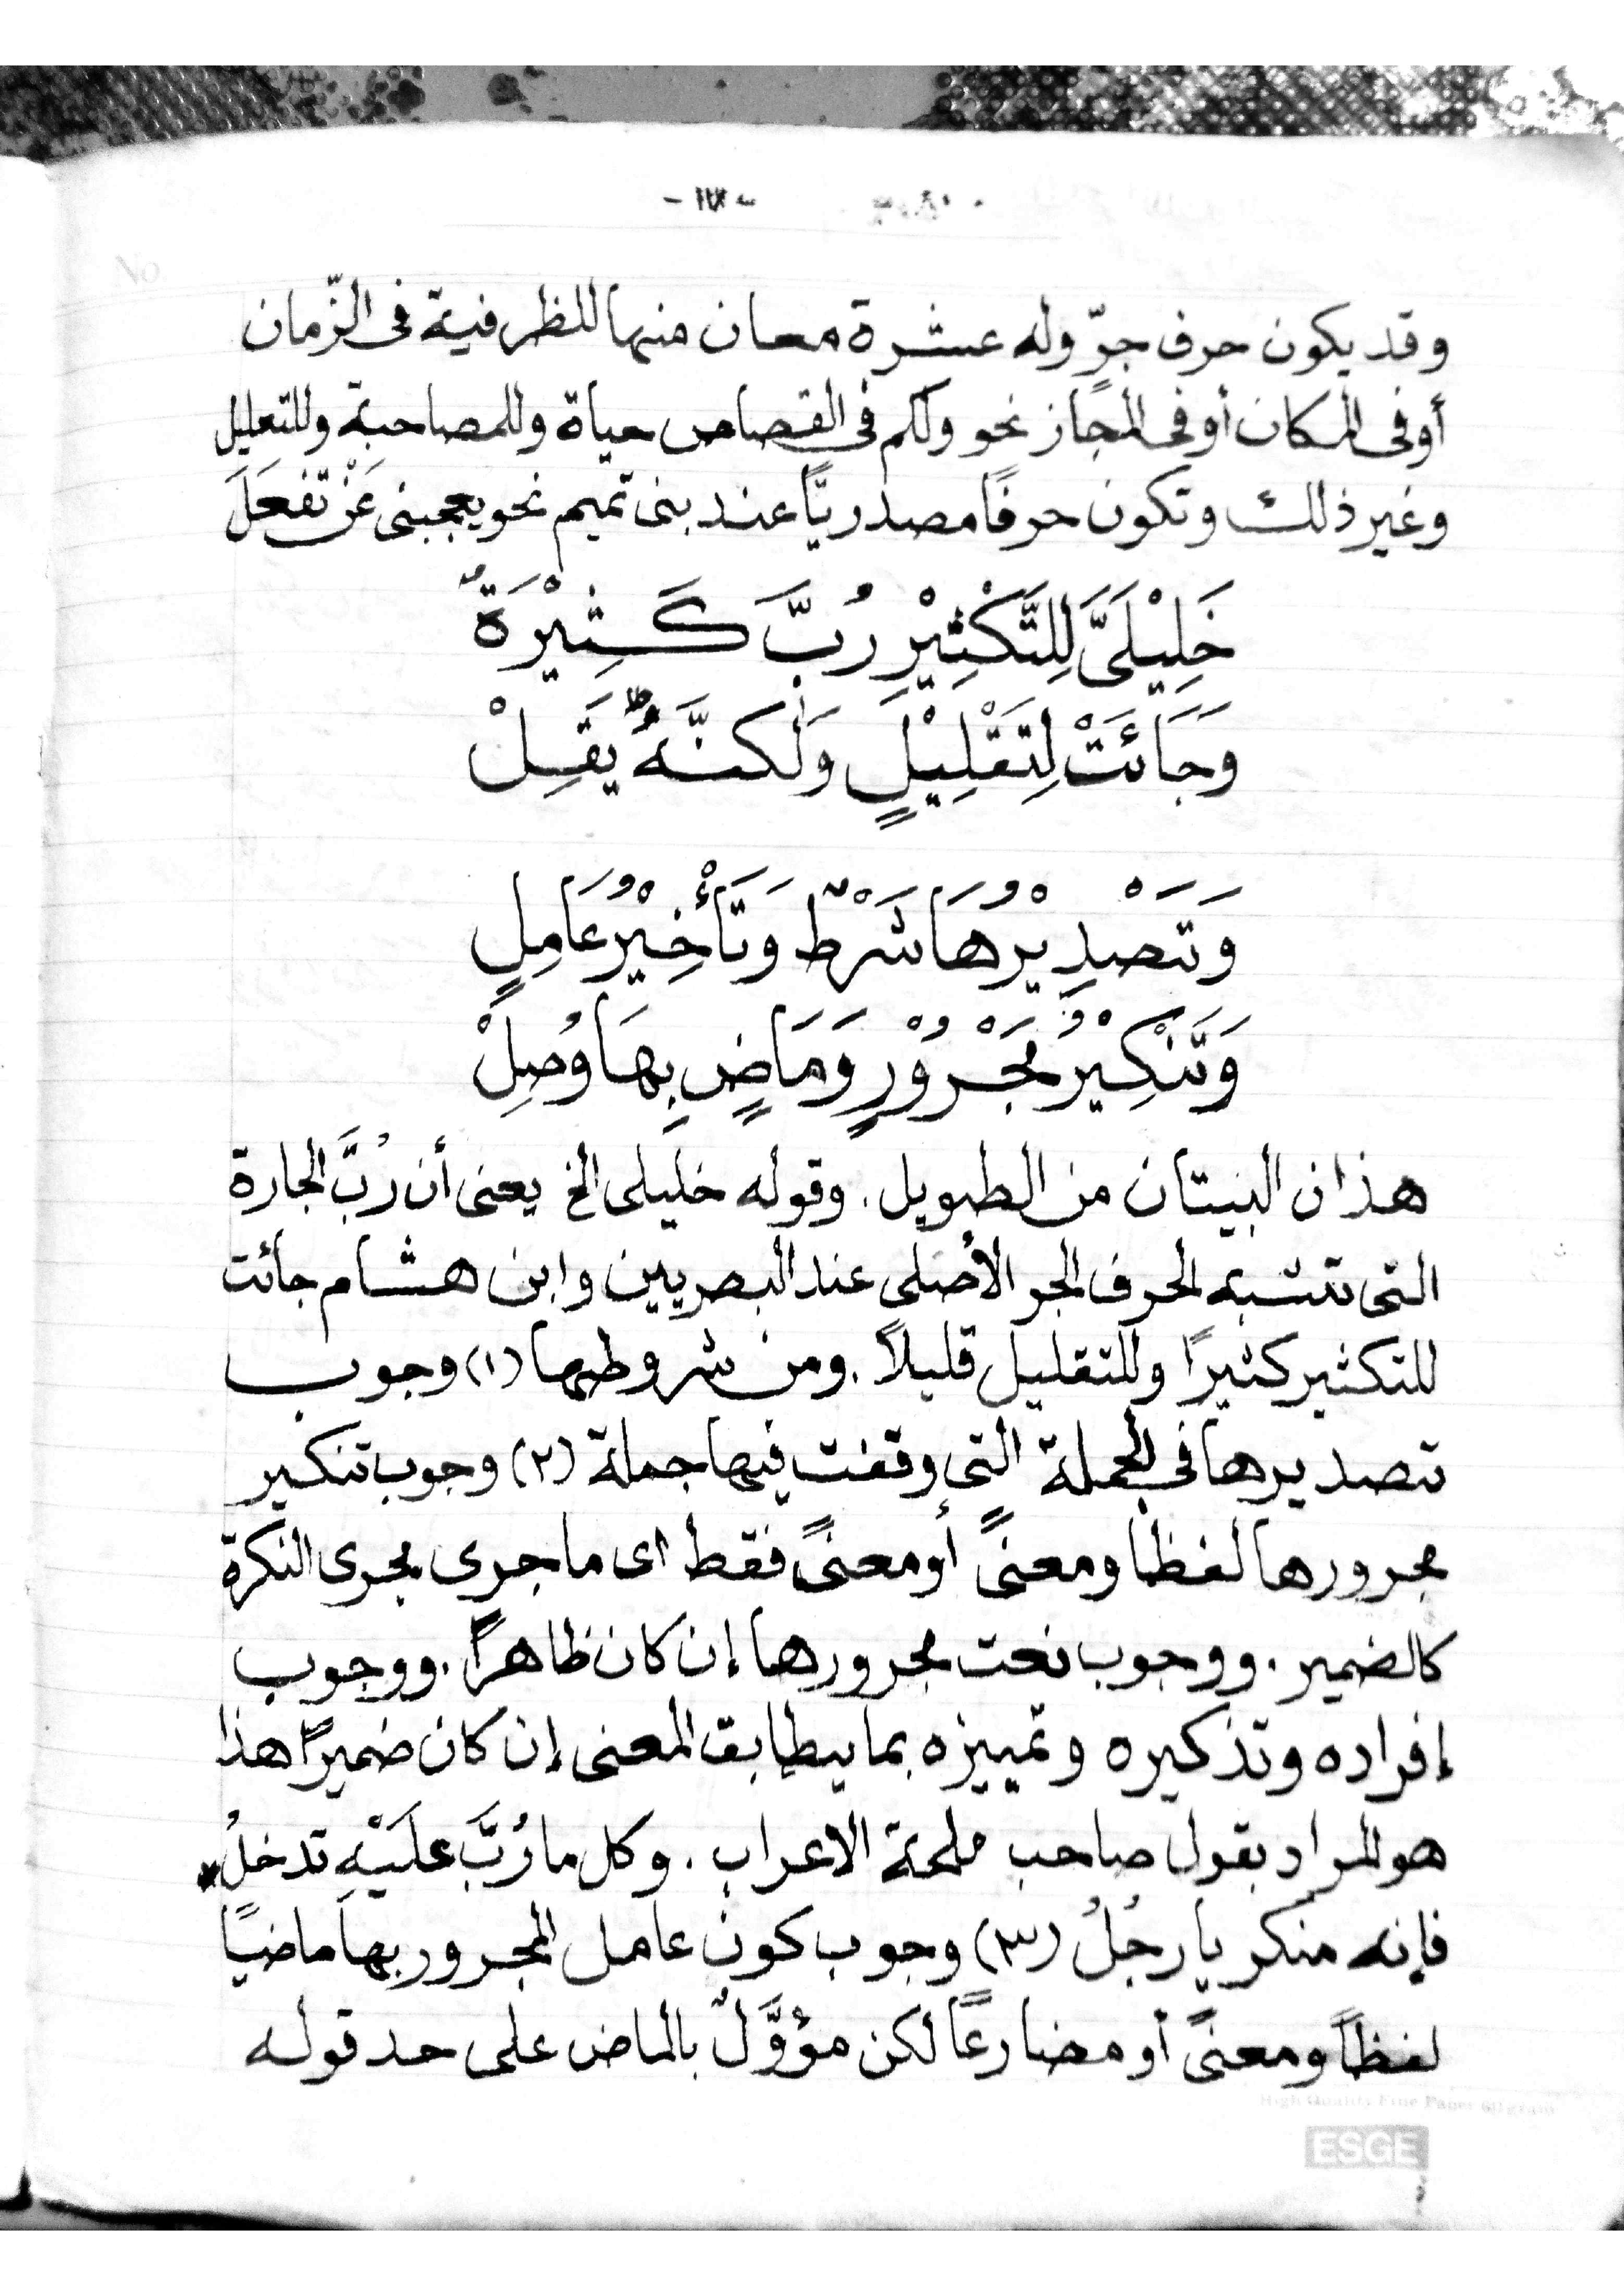 وقد يكون حرف جرّ وله عشرة معان منها للظرفية فى الزّمان
أو فى المكان أو فى المجاز نحو ولكم فى القصاص حياة وللمصاحبة وللتعليل
وغير ذلك وتكون حرفًا مصدريًّا عند بنى تميم نحو يعجبنى عَنْ تفعَلَ
خَلِيْلَىَّ لِلتَّكْثِيْرِ رُبَّ كَثِيْرَةٌ
وَجَائَتْ لِتَقْلِيْلٍ وَلٰكنَّهُ يَقِلْ
وَتَصْدِيْرُهَا شَرْطٌ وَتَأْخِيْرُ عَامِلٍ
وَتَنْكِيْرُ مَجْرُوْرٍ وَمَاضٍ بِهَا وُصِلْ
هذان البيتان من الطويل. وقوله خليلى الخ يعنى أن رُبَّ الجارة
التى تتشبه الحرف الجر الأصلى عند البصريين وابن هشام جائت
للتكثير كثيرًا وللتقليل قليلاً. ومن شروطها (١) وجوب
تصديرها فى الجملة التى وقفت فيها جملة (٢) وجوب تنكير
مجرورها لفظا ومعنىً أو معنىً فقط اى ما جرى مجرى النكرة
كالضمير. ووجوب نعت مجرورها إن كان ظاهرًا. ووجوب
إفراده وتذكيره وتمييزه بما يطابق المعنى إن كان ضميرًا هذا
هو المراد بقول صاحب ملحة الاعراب. وكل ما رُبَّ عَلَيْهِ تدخلُ*
فإنه منكر يا رجُلُ (٣) وجوب كون عامل المجرور بها ماضيًا
لفظاً ومعنىً أو مضارعًا لكن مؤوَّلٌ بالماض على حد قوله
High Quality Fine Paper
ESGE